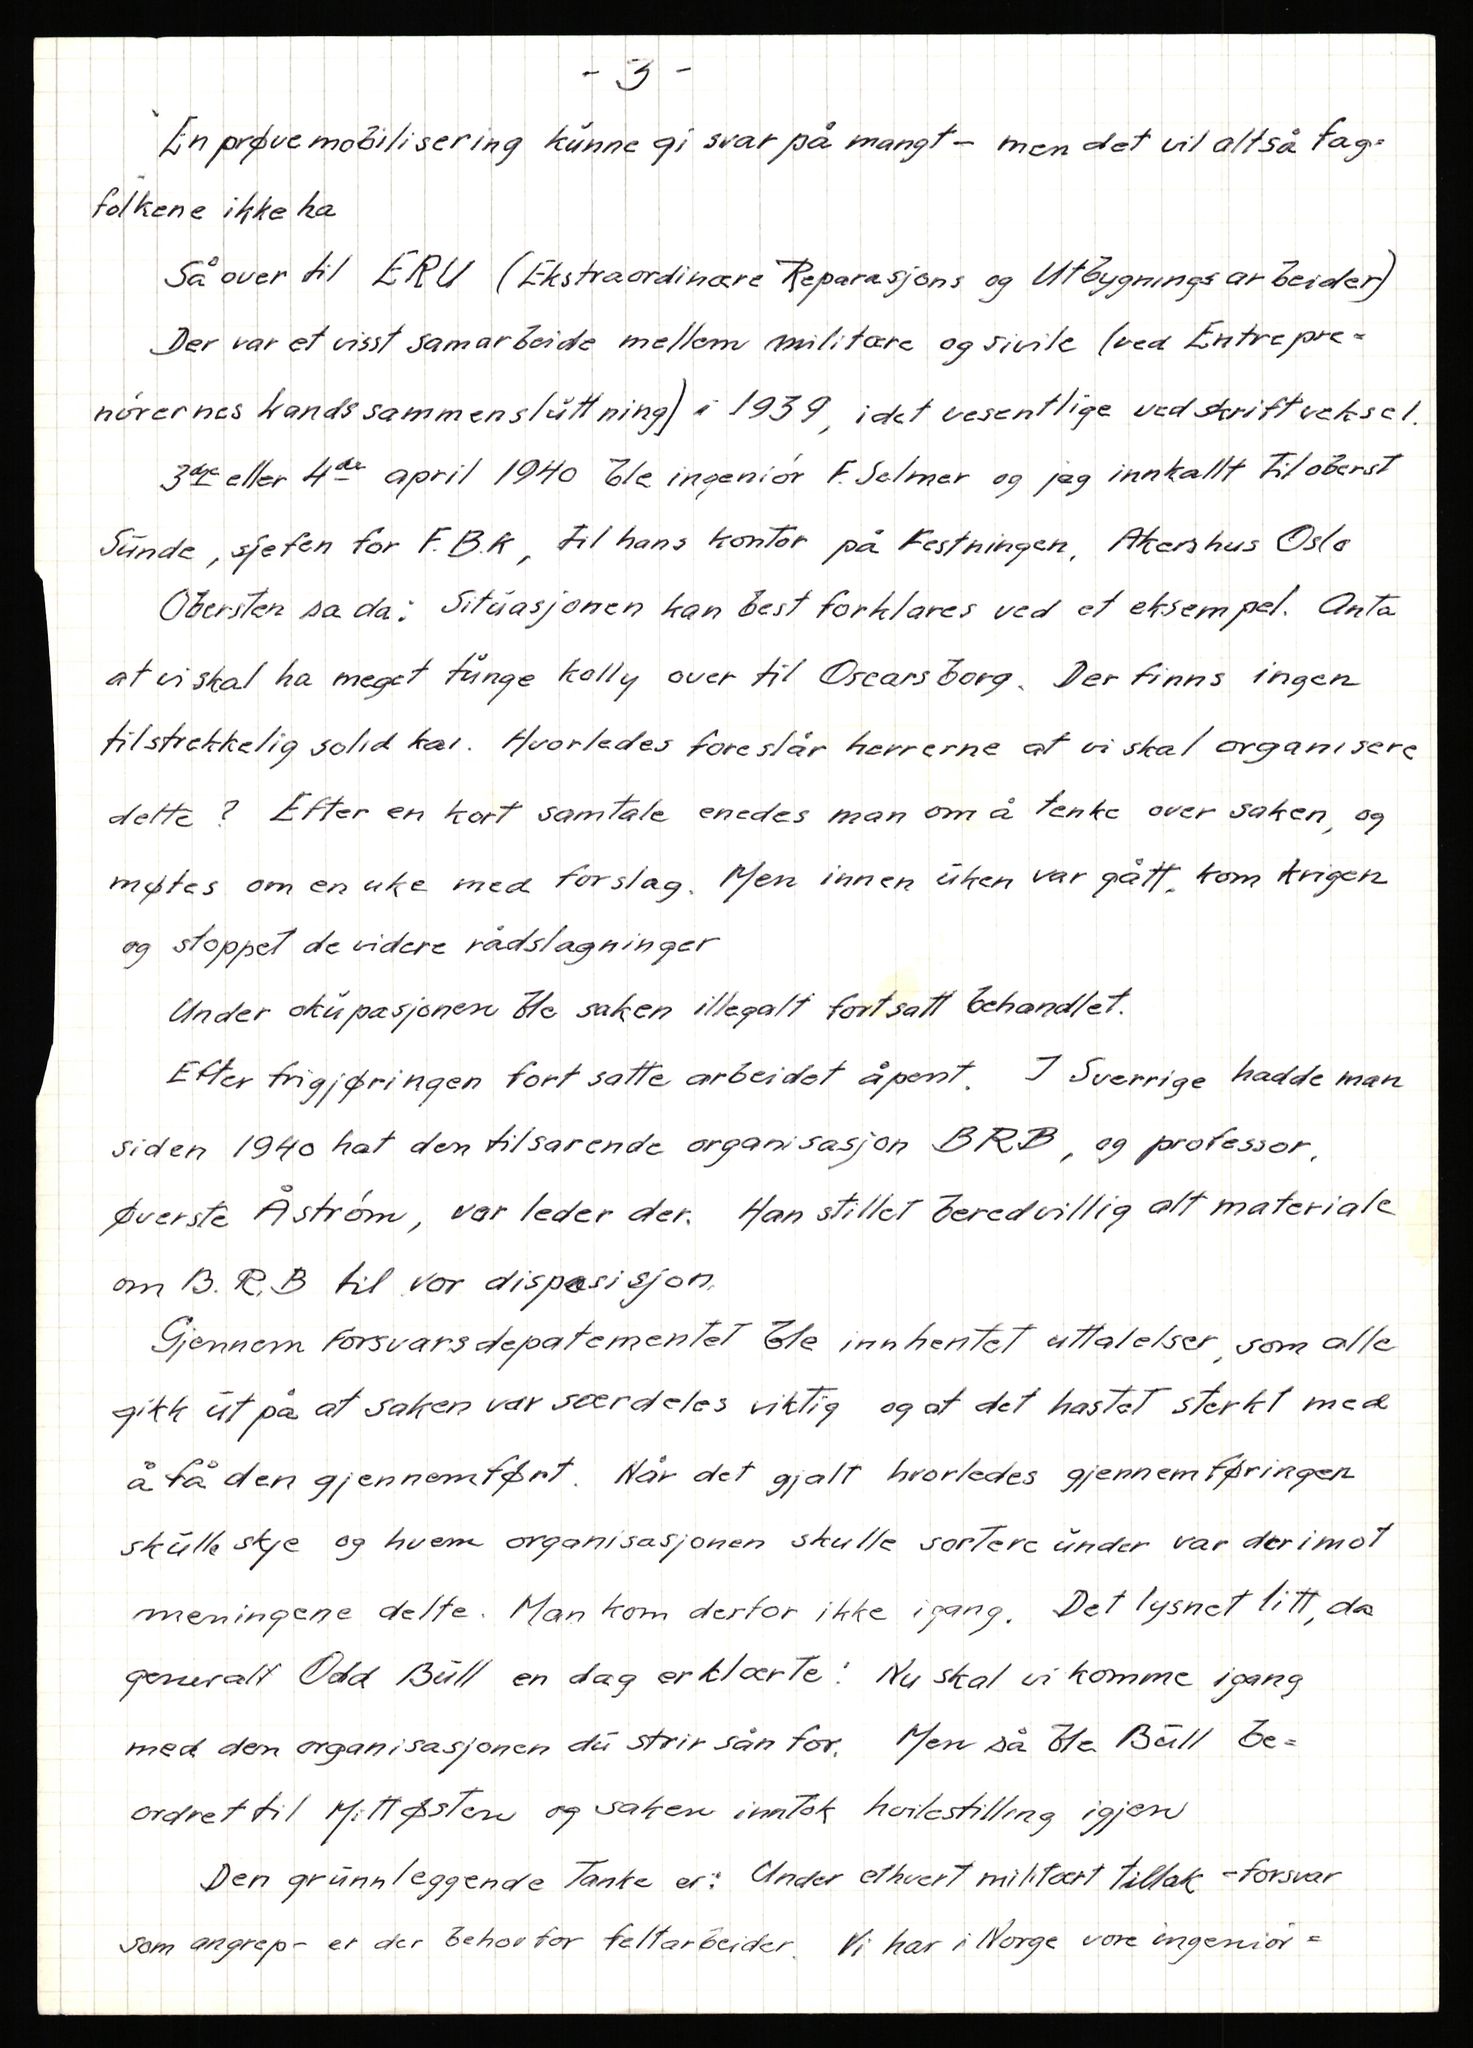 - 3 -
En prøvemobilisering kunne gi svar på mangt - men det vil altså fag=
folkene ikke ha
Så over til ERU (Ekstraordinære Reparasjons og Utbygningsarbeider)
Der var et visst samarbeide mellem militære og sivile (ved Entrepre=
nörernes Landssammensluttning) i 1939, i det vesentlige ved skriftveksel.
3dje eller 4de april 1940 ble ingeniör F. Selmer og jeg innkallt til oberst
Sunde, sjefen for F.B.K, til hans kontor på Festningen, Akershus Oslo
Obersten sa da: Situasjonen kan best forklares ved et eksempel. Anta
at vi skal ha meget tunge kolly over til Oscarsborg. Der finns ingen
tilstrekkelig solid kai. Hvorledes foreslår herrerne at vi skal organisere
dette? Efter en kort samtale enedes man om å tenke over saken, og
møtes om en uke med forslag. Men innen uken var gått, kom krigen
og stoppet de videre rådslagninger
Under okupasjonen ble saken illegalt fortsatt behandlet.
Efter frigjøringen fortsatte arbeidet åpent. I Sverrige hadde man
siden 1940 hat den tilsarende organisasjon BRB, og professor,
øverste Åström, var leder der. Han stillet beredvillig alt materiale
om B.R.B til vor disposisjon.
Gjennem Forsvarsdepatementet ble innhentet uttalelser, som alle
gikk ut på at saken var særdeles viktig og at det hastet sterkt med
å få den gjennemført. Når det gjalt hvorledes gjennemføringen
skulle skje og hvem organisasjonen skulle sortere under var derimot
meningene delte. Man kom derfor ikke igang. Det lysnet litt, da
generalt Odd Bull en dag erklærte: Nu skal vi komme igang
med den organisasjonen du strir sån for. Men så ble Bull be=
ordret til Mittøsten og saken inntok hvilestilling igjen
Den grunnleggende tanke er: Under ethvert militært tiltak - forsvar
som angrep - er der behov for feltarbeider. Vi har i Norge vore ingeniör=